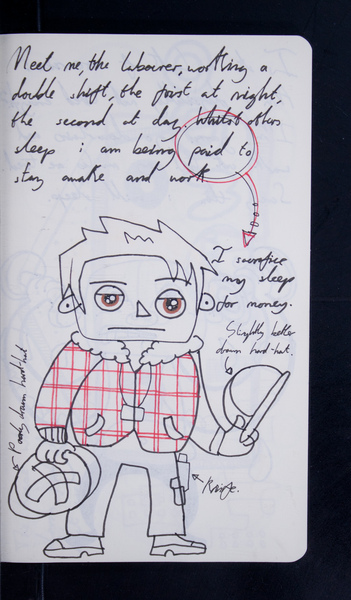 Meet me, the labourer, working a
double shift, the first at night,
the second at day. Whilst others
sleep i am being paid to
stay awake and work
I sacrifice
my sleep
for money.
Slightly better
drawn hard-hat.
Poorly drawn hard-hat
Knife.